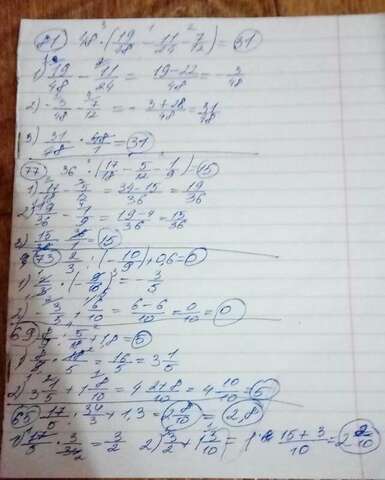 81) 48 · (19/48 - 11/24 - 7/12) = 31
1) 19/48 - 11/24 = 19-22/48 = - 3/48
2) - 3/48 - 7/12 = - 3+28/48 = 31/48
3) 31/48 · 48/1 = 31
77) 36 · (17/18 - 5/12 - 1/9) = 15
1) 17/18 - 5/12 = 34-15/36 = 19/36
2) 19/36 - 1/9 = 19-4/36 = 15/36
3) 15/36 · 36/1 = 15
73) 2/3 · (- 9/10) + 0,6 = 0
2) - 3/5 + 6/10 = 6-6/10 = 0/10 = 0
69) + 1,8 = 5
= 16/5 = 3 1/5
2) 3 1/5 + 1 8/10 = 4 2+8/10 = 4 10/10 = 5
65) 17/5 : 34/3 + 1,3 = 2 8/10 = 2,8
1) 17/5 · 3/34 = 3/2 2) 3/2 + 1 3/10 = 1 15+3/10 = 2 8/10